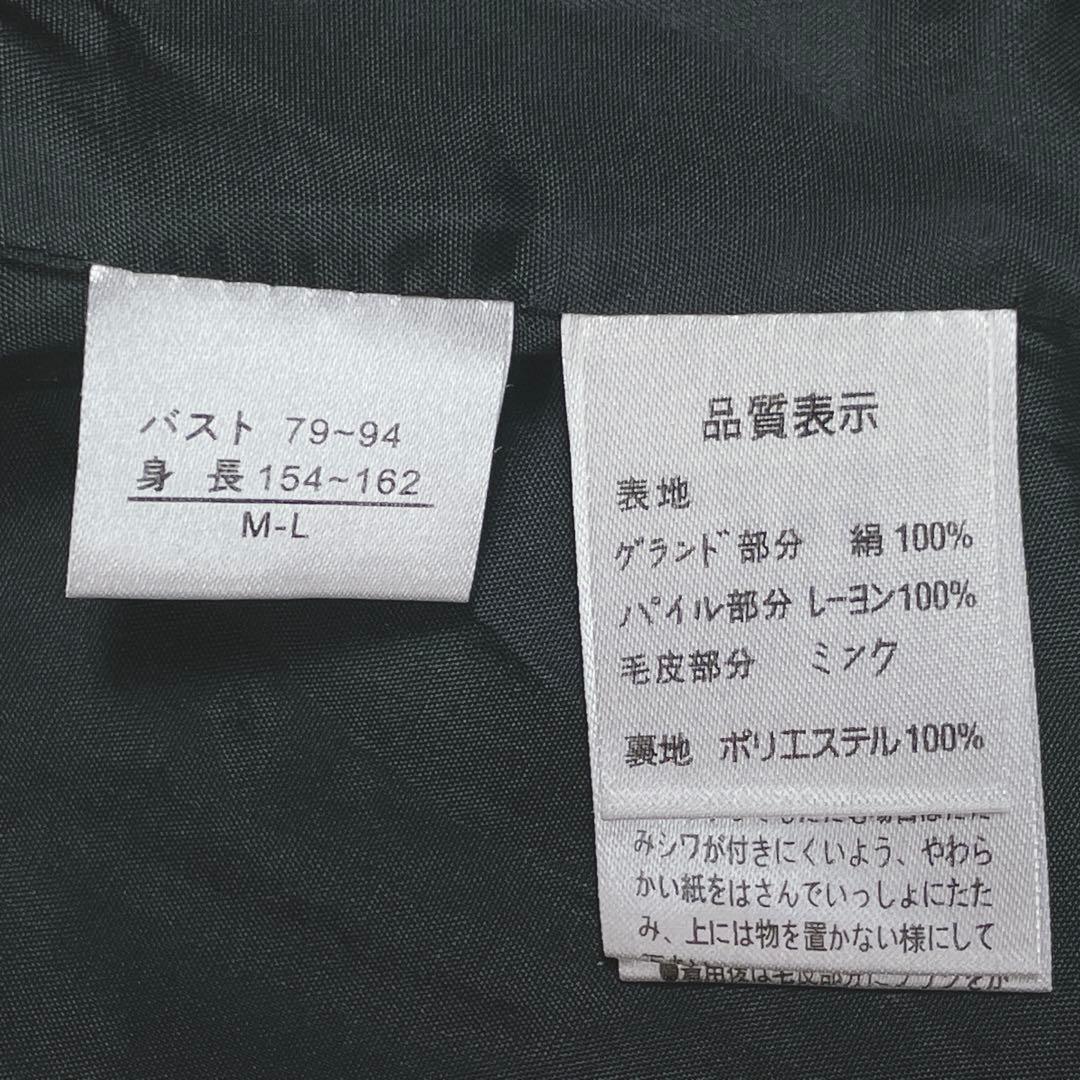 バスト 79~94
身 長 154~162
M-L
品質表示
表地
グランド部分 絹 100%
パイル部分 レーヨン100%
毛皮部分 ミンク
裏地 ポリエステル100%
みシワが付きにくいよう、やわら
かい紙をはさんでいっしょにたた
み、上には物を置かない様にして
●着用後は毛皮部分にブラシをか